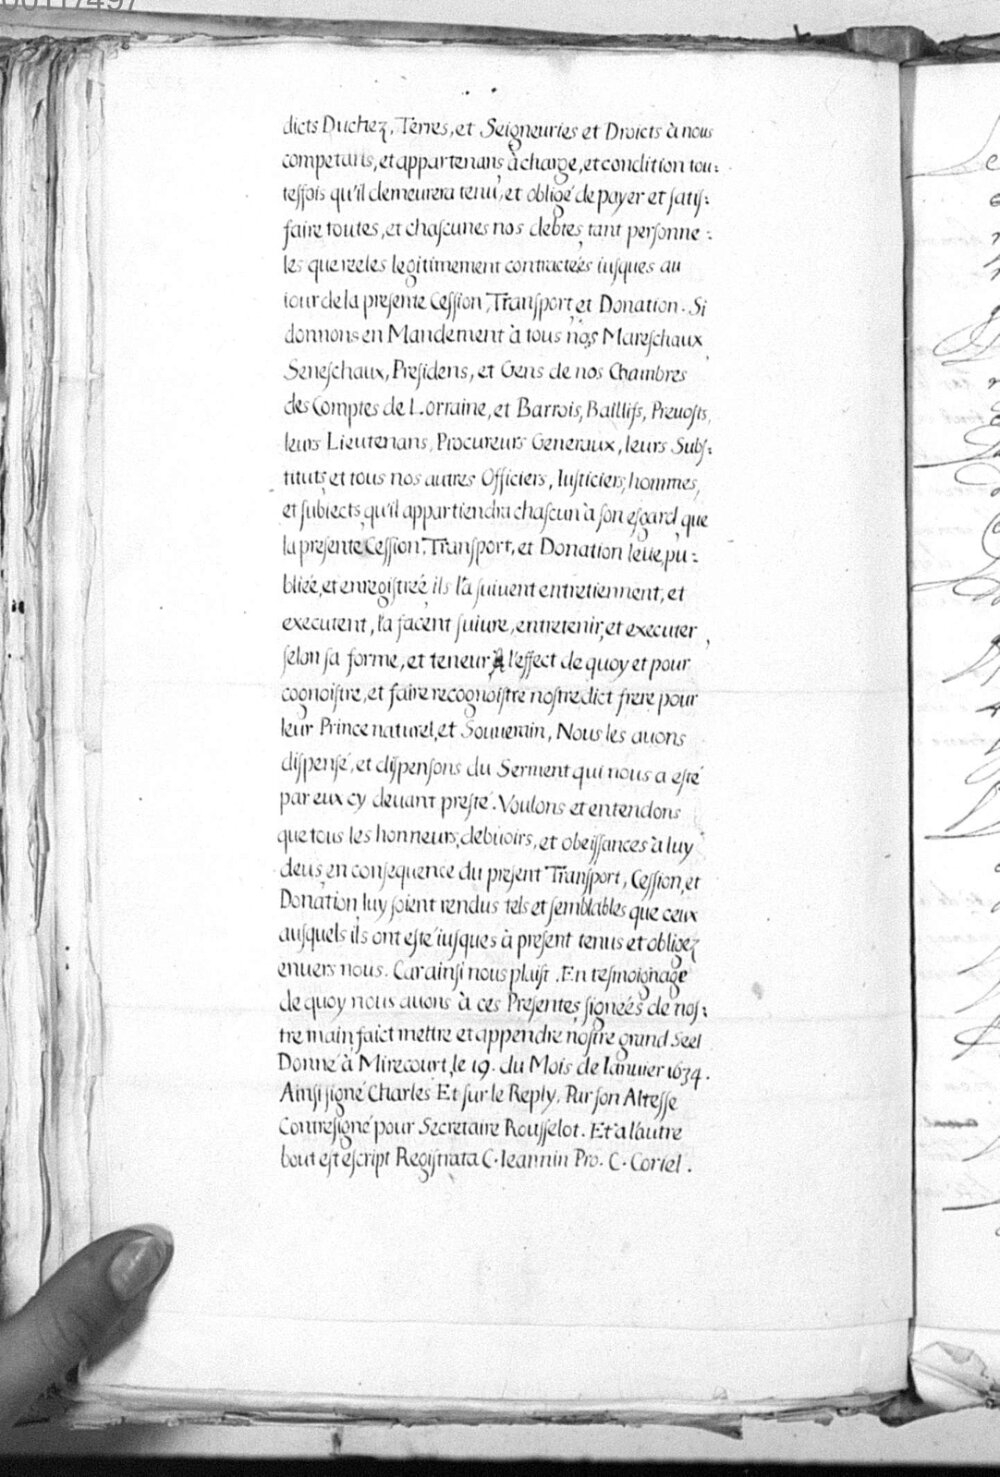 dicts Duchez, Terres, et Seigneuries et Droicts à nous
competans, et appartenans à charge, et condition tou:
tesfois qu'il demeurera tenu, et obligé de payer et satis:
faire toutes, et chascunes nos debtes, tant personne:
les que reeles legitimement contracteés iusques au
iour de la presente Cession, Transport, et Donation. Si
donnons en Mandement à tous nos Mareschaux,
Seneschaux, Presidens, et Gens de nos Chambres
des Comptes de Lorraine, et Barrois, Baillifs, Preuosts,
leurs Lieutenans, Procureurs Generaux, leurs Subs:
tituts, et tous nos autres Officiers, Iusticiers, hommes,
et subiects, qu'il appartiendra chascun à son esgard que
la presente Cession, Transport, et Donation leüe, pu:
bliée, et enregistreé ils l'a suiuent entretiennent, et
executent, l'a facent suiure, entretenir, et executer,
selon sa forme, et teneur A l'effect de quoy et pour
cognoistre, et faire recognoistre nostredict frere pour
leur Prince naturel, et Souuerain, Nous les auons
dispensé, et dispensons du Serment qui nous a esté
par eux cy deuant presté. Voulons et entendons
que tous les honneurs, debuoirs, et obeissances à luy
deus, en consequence du present Transport, Cession, et
Donation, luy soient rendus tels et semblables que ceux
ausquels ils ont esté iusques à present tenus et obligez
enuers nous. Car ainsi nous plaist. En tesmoignage
de quoy nous auons à ces Presentes, signeés de nos:
tre main, faict mettre et appendre nostre grand Seel
Donné à Mirecourt, le 19. du Mois de Ianuier 1634.
Ainsi signé Charles Et sur le Reply, Par son Altesse
Contresigné pour Secretaire Rousselot. Et a l'autre
bout est escript Registrata C. Ieannin Pro. C. Coriel.